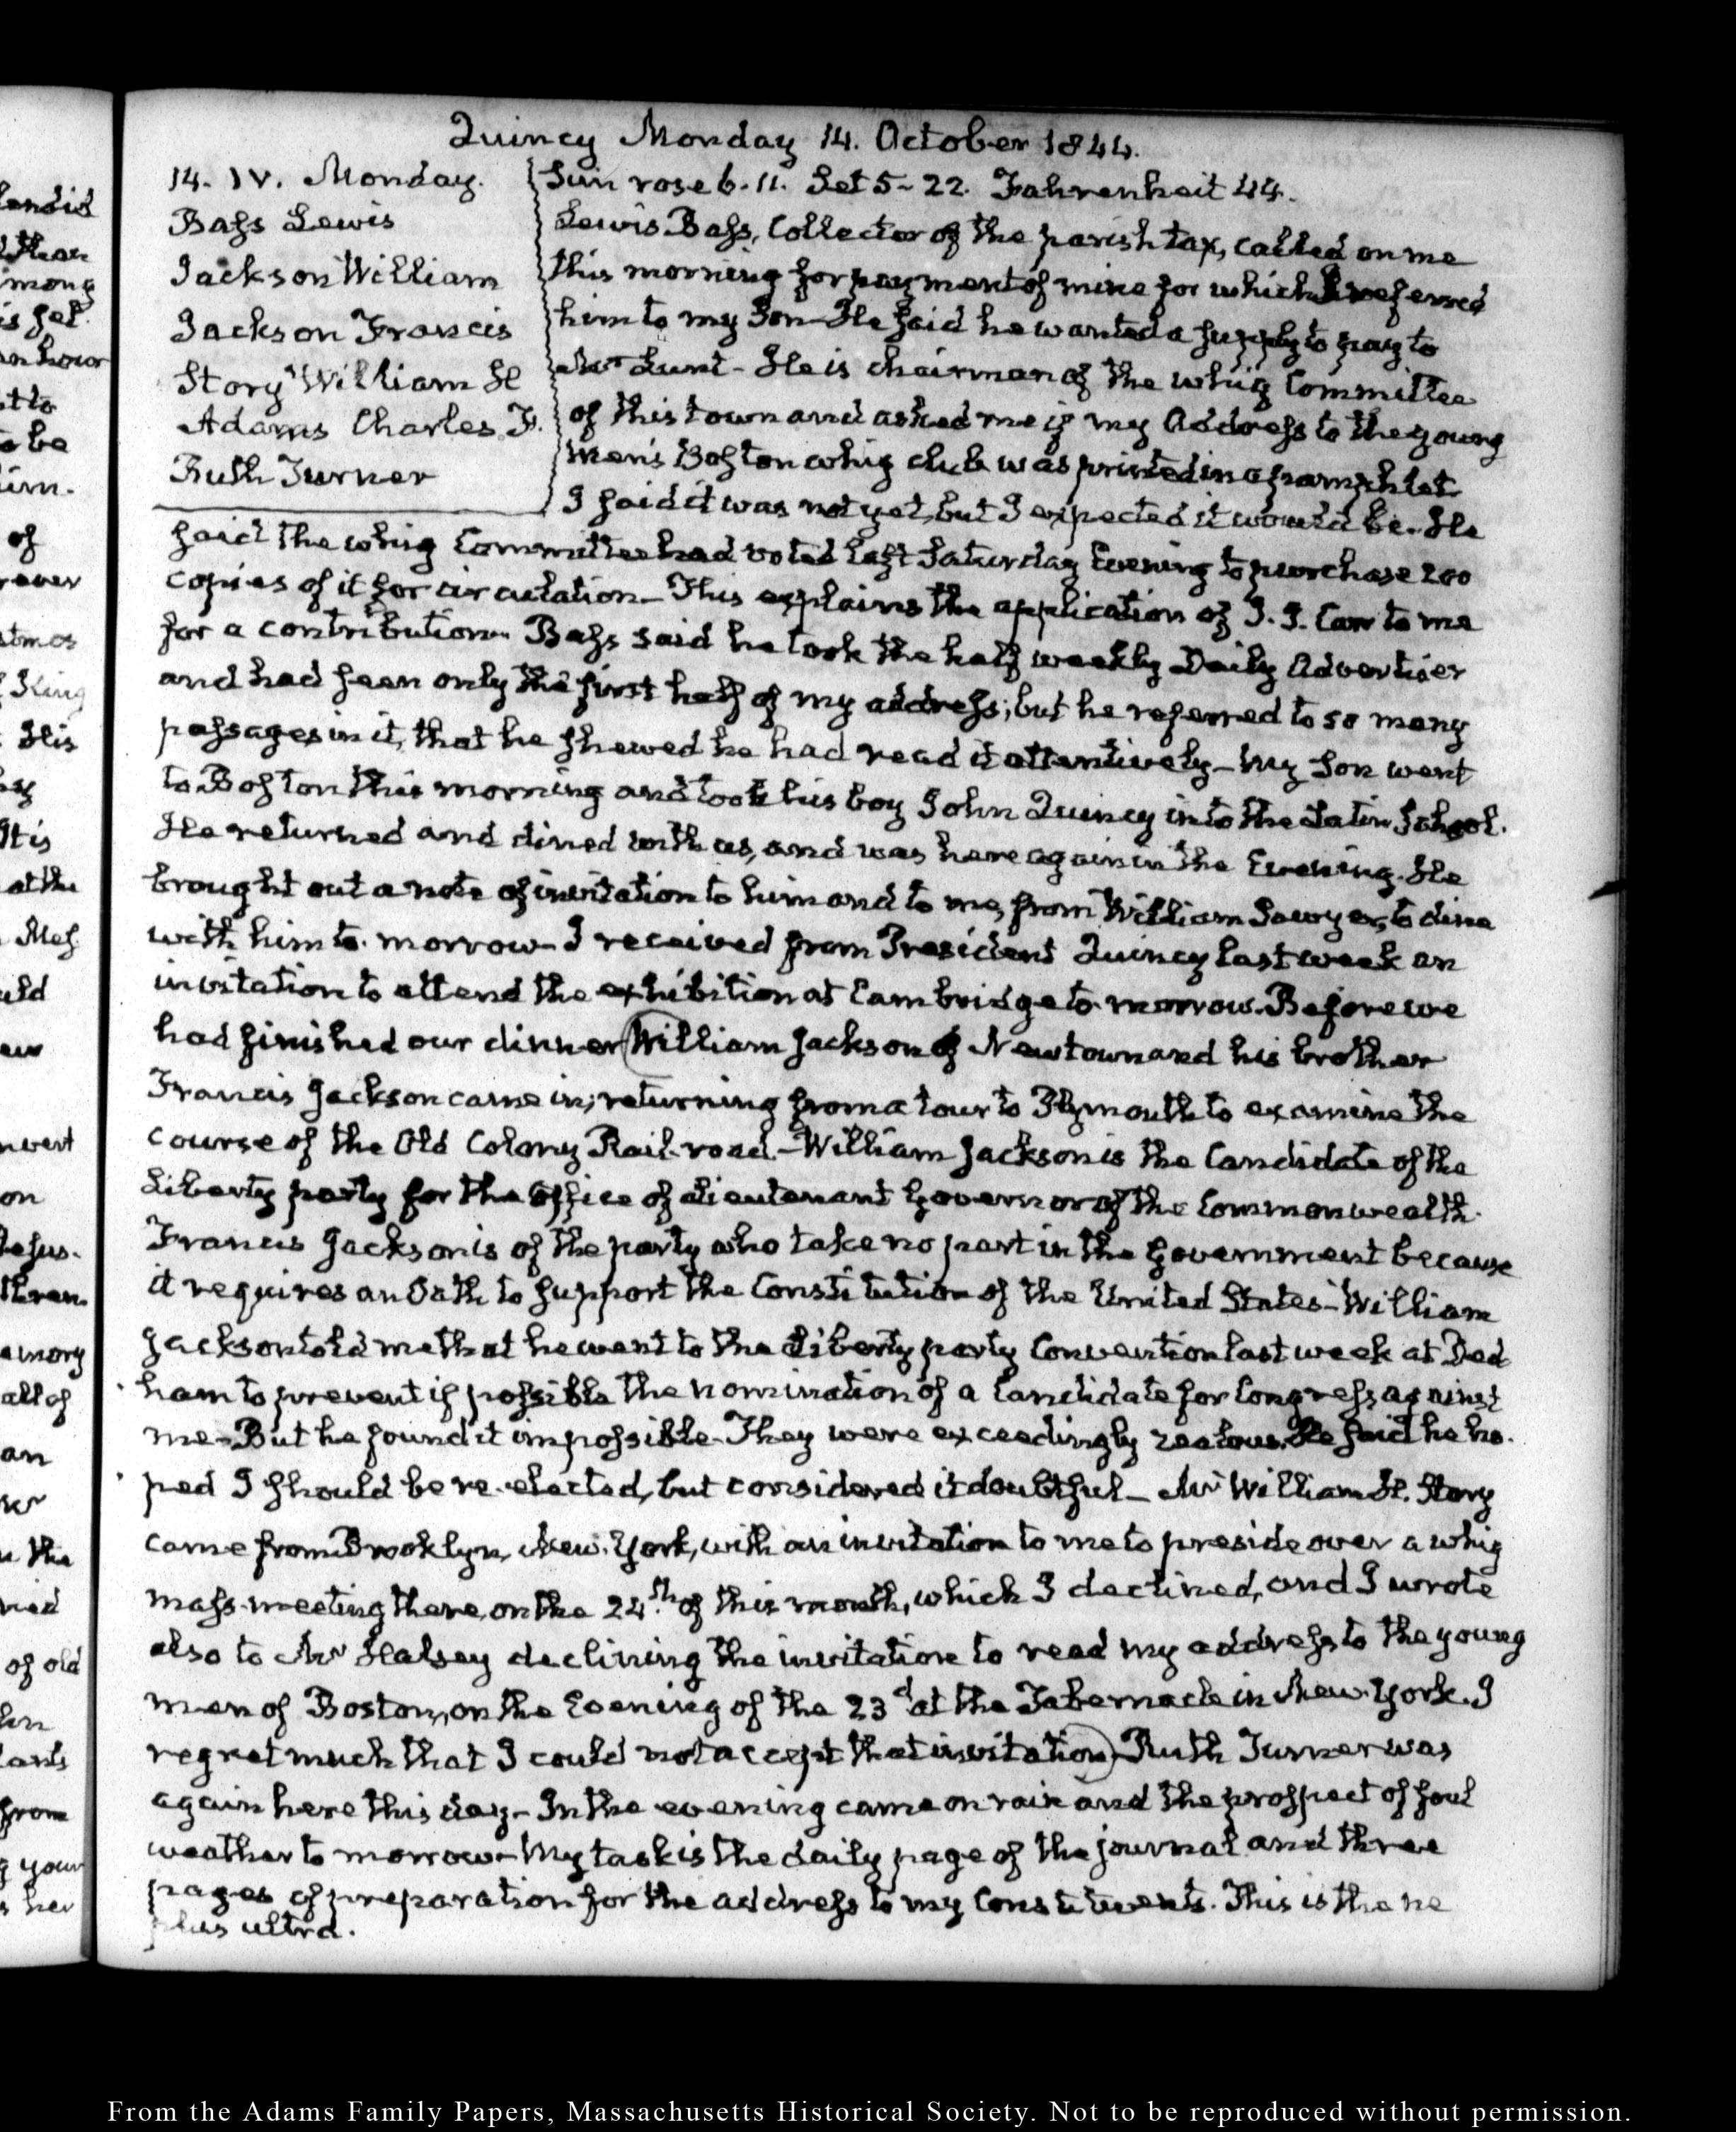 Quincy Monday 14. October 1844.
14. IV. Monday.
Bass Lewis
Jackson William
Jackson Francis
Story William H
Adams Charles F.
Ruth Turner
Sun rose 6-11. Set 5-22. Fahrenheit 44.
Lewis Bass, Collector of the parish tax, called on me
this morning for payment of mine for which I referred
him to my Son- He said he wanted a supply to pay to
Mr Lunt- He is chairman of the whig Committee
of this town and asked me if my Address to the young
men's Boston whig club was printed in a pamphlet
I said it was not yet, but I expected it would be. He
said the whig Committee had voted last Saturday Evening to purchase 200
copies of it for circulation- This explains the application of J. J. Carr to me
for a contribution- Bass said he took the half weekly Daily Advertiser
and had seen only the first half of my address; but he referred to so many
passages in it, that he shewed he had read it attentively- My Son went
to Boston this morning and took his boy John Quincy into the Latin School.
He returned and dined with us, and was here again in the Evening. He
brought out a note of invitation to him and to me, from William Sawyer, to dine
with him to-morrow- I received from President Quincy last week an
invitation to attend the exhibition at Cambridge to-morrow. Before we
had finished our dinner William Jackson of Newtown and his brother
Francis Jackson came in; returning from a tour to Plymouth to examine the
course of the Old Colony Rail-road- William Jackson is the Candidate of the
Liberty party for the Office of Lieutenant Governor of the Commonwealth.
Francis Jackson is of the party who take no part in the Government because
it requires an Oath to support the Constitution of the United States- William
Jackson told me that he went to the Liberty party Convention last week at Ded
ham to prevent if possible the nomination of a Candidate for Congress against
me- But he found it impossible- They were exceedingly zealous. He said he ho-
ped I should be re-elected, but considered it doubtful- Mr William H. Story
came from Brooklyn, New-York, with an invitation to me to preside over a whig
mass-meeting there, on the 24th of this month, which I declined, and I wrote
also to Mr Halsey declining the invitation to read my address to the young
men of Boston, on the Evening of the 23d at the Tabernacle in New-York. I
regret much that I could not accept that invitation- Ruth Turner was
again here this day- In the evening came on rain and the prospect of foul
weather to morrow- My task is the daily page of the journal and three
pages of preparation for the address to my Constituents. This is the ne
plus ultra.
From the Adams Family Papers, Massachusetts Historical Society. Not to be reproduced without permission.